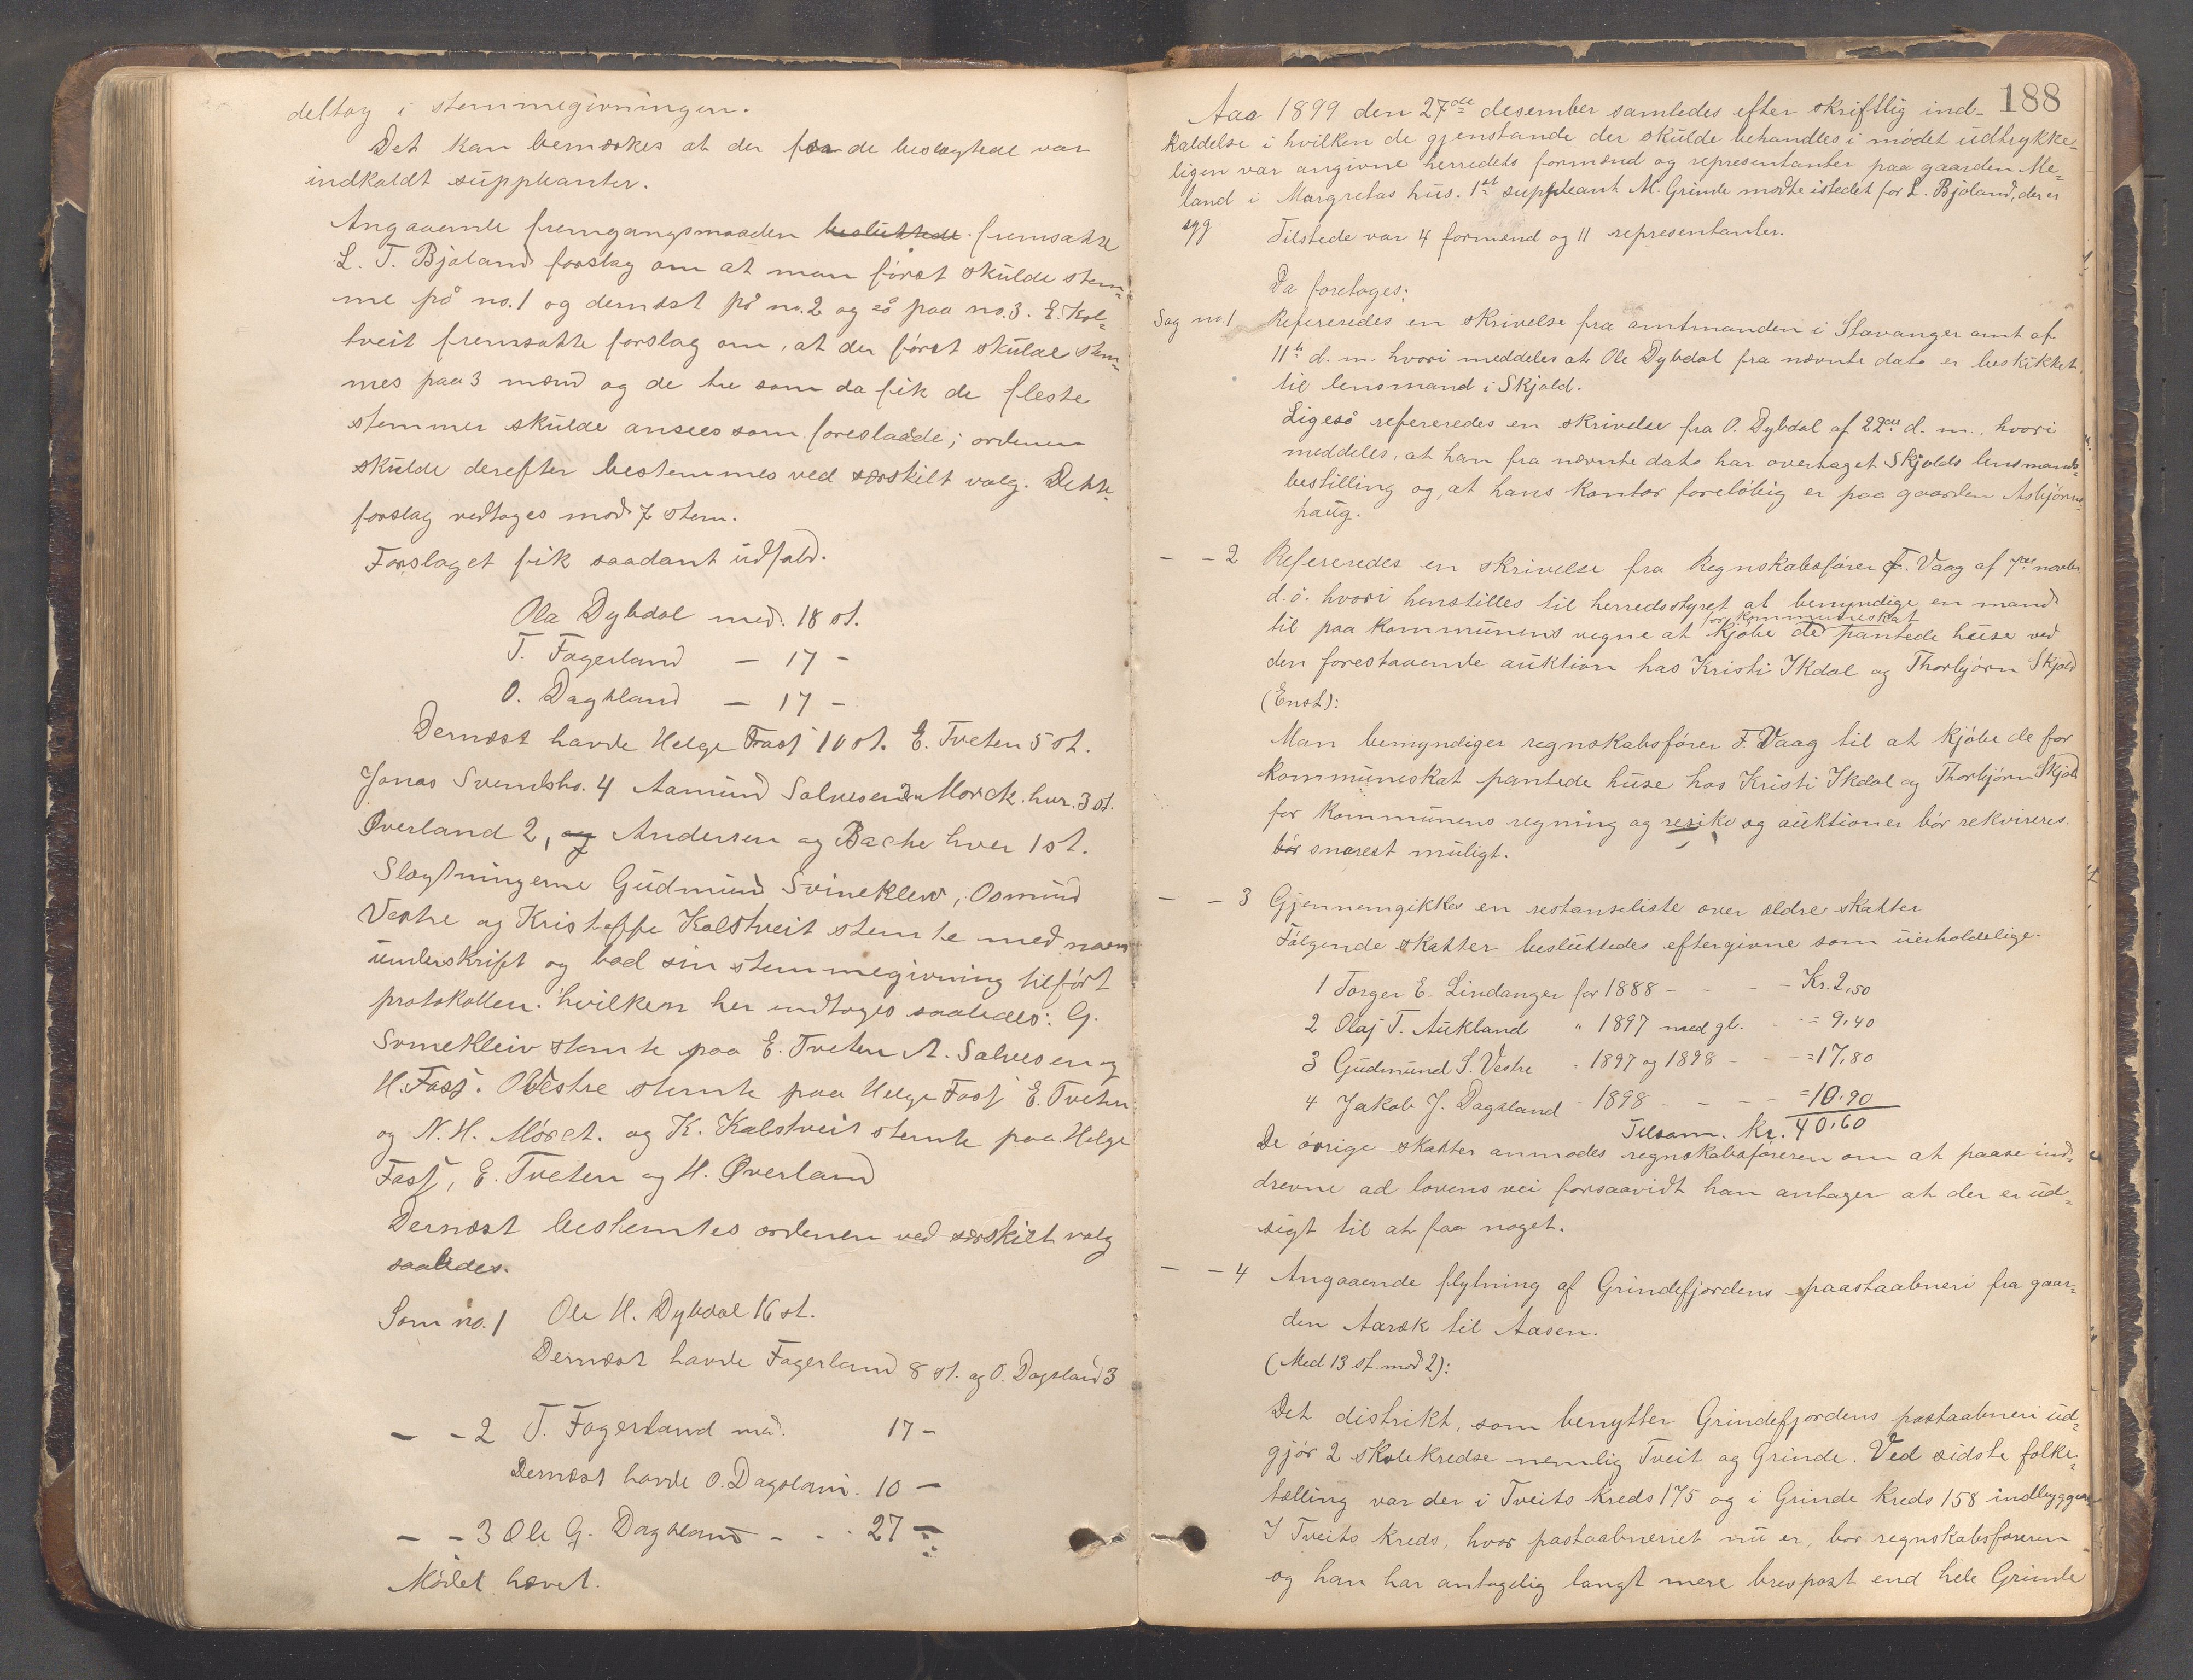 deltog i stemmegivningen.
Det kan bemærkes at der for de beslægtede var
indkaldt suppleanter.
Angaaende fremgangsmaaden besluttede fremsatte
L. T. Bjoland forslag om at man først skulde stem=
me på no. 1 og dernæst på no. 2 og så paa no. 3. E. Kol=
tveit fremsatte forslag om, at der først skulde stem=
mes paa 3 mænd og de tre som da fik de fleste
stemmer skulde ansees som foreslaaede; ordenen
skulde derefter bestemmes ved særskilt valg. Dette
forslag vedtoges mod 7 stem.
Forslaget fik saadant udfald.
Ola Dybdal med. 18 st.
T. Fagerland — 17 —
O. Dagsland — 17 —
Dernæst havde Helge Fasf 10 st. E. Tveten 5 st.
Jonas Svendsbø. 4 Aamund Salvesen Morck. hver. 3 st.
Øverland 2, og Andersen og Bache hver 1 st.
Slægtningerne Gudmund Svineklew, Osmund
Vestre og Kristoffe Kolstveit stemte med navn
underskrift og bad sin stemmegivning tilført
protokollen. hvilken her indtoges saaledes: G.
Svinekleiv stemte paa E. Tveten A. Salvesen og
H. Fasf. O Vestre stemte paa Helge Fasf E. Tveten
og N. H. Mørck. og K. Kalstveit stemte paa Helge
Fasf, E. Tveten og H. Øverland
Dernæst bestemtes ordenen ved særskilt valg
saaledes.
Som no. 1 Ole H. Dybdal 16 st.
Dernæst havde Fagerland 8 st. og O. Dagsland 3
— - 2 T. Fagerland med. 17 —
Dernæst havde O. Dagsland. 10 —
— - 3 Ole G. Dagsland - - 27 —
Mødet hævet.
188
Aar 1899 den 27de desember samledes efter skriftlig ind-
kaldelse i hvilken de gjenstande der skulde behandles i mødet udtrykke=
ligen var angivne herredets formænd og representanter paa gaarden Me=
land i Margretas hus. 1ste suppleant M. Grinde mødte istedet for L. Bjoland, der er
syg. Tilstede var 4 formænd og 11 representanter.
Da foretoges:
Sag no. 1 Refereredes en skrivelse fra amtmanden i Stavanger amt af
11te d. m. hvori meddeles at Ole Dybdal fra nævnte dato er beskikket
til lensmand i Skjold.
Ligeså refereredes en skrivelse fra O. Dybdal af 22de d. m., hvori
meddeles, at han fra nævnte dato har overtaget Skjolds lensmands=
bestilling og, at hans kontor foreløbig er paa gaarden Asbjørns=
haug.
— - 2 Refereredes en skrivelse fra Regnskabsfører F. Vaag af 7de novbr.
d. å. hvori henstilles til herredsstyret at bemyndige en mand
for kommuneskat
til paa kommunens vegne at kjøbe de pantede huse ved
den forestaaende auktion hos Kristi Ikdal og Thorbjørn Skjold
(Enst):
Man bemyndiger regnskabsfører F. Vaag til at kjøbe de for
kommuneskat pantede huse hos Kristi Ikdal og Thorbjørn Skjold
for kommunens regning og resiko og auktioner bør rekvireres
bør snarest muligt.
— - 3 Gjennemgikkes en restanseliste over ældre skatter
Følgende skatter besluttedes eftergivne som uerholdelige.
1 Torger E. Lindanger for 1888 - - - Kr. 2,50
2 Olaj T. Aukland " 1897 med gl. - - = 9,40
3 Gudmund S. Vestre = 1897 og 1898 - - = 17,80
4 Jakob J. Dagsland - 1898 - - - = 10,90
Tilsam. kr. 40,60
De øvrige skatter anmodes regnskabsføreren om at paase ind=
drevne ad lovens vei forsaavidt han antager at der er ud=
sigt til at faa noget.
— - 4 Angaaende flytning af Grindefjordens paastaabneri fra gaar=
den Aaræk til Aasen.
(Med 13 st. mod 2):
Det distrikt, som benytter Grindefjordens postaabneri ud=
gjør 2 skolekredse nemlig Tveit og Grinde. Ved sidste folke=
tælling var der i Tveits kreds 175 og i Grinde kreds 158 indbyggere
I Tveits kreds, hvor postaabneriet nu er, bor regnskabsføreren
og han har antagelig langt mere brevpost end hele Grinde